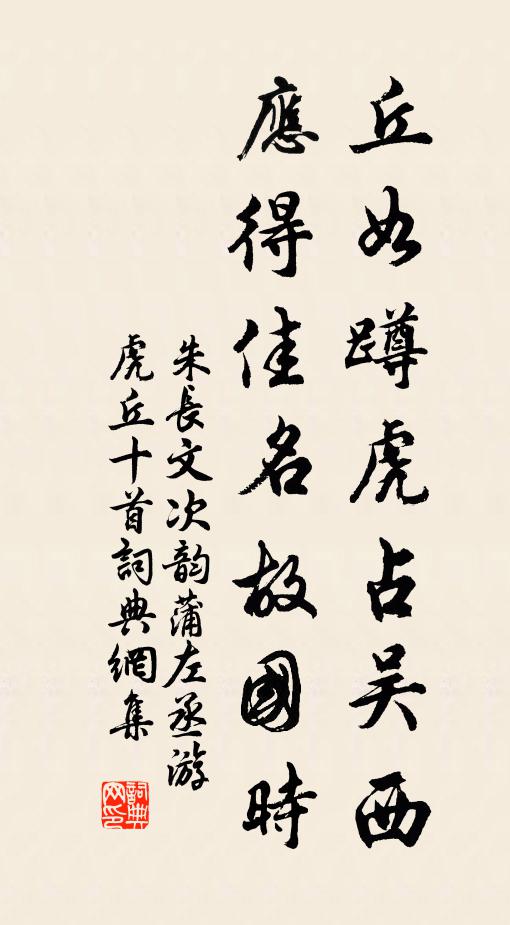 丘如蹲虎占吴西
應得佳名故國時
朱長文次韵蒲左丞游
虎丘十首詞典網集
詞典网印